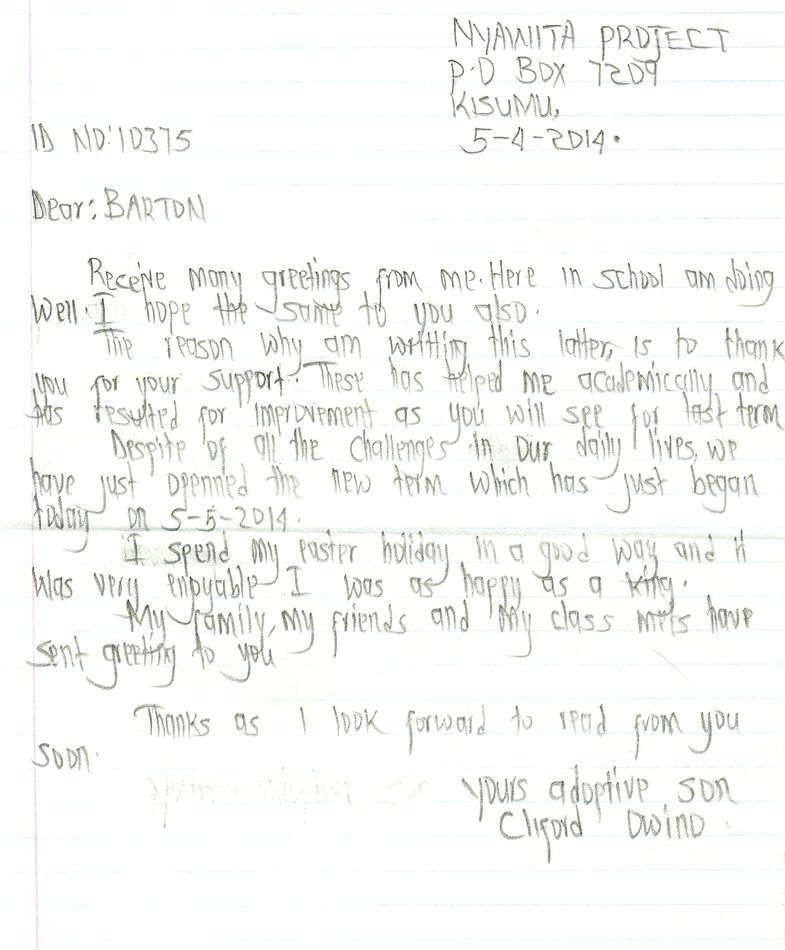 NYAWITA PROJECT
P.O BOX 7209
KISUMU,
ID NO:10375
5-4-2014.
Dear: BARTON
Receive many greetings from me. Here in school am doing
Well. I hope the same to you also.
The reason why am writting this latter, is to thank
you for your support. These has helped me academically and
has resulted for improvement as you will see for last term
Despite of all the challenges in our daily lives, we
have just openned the new term which has just began
today on 5-5-2014.
I spend my easter holiday in a good way and it
was very enjoyable. I was as happy as a king.
My family, my friends and my class mets have
sent greeting to you
Thanks as I look forward to read from you
soon.
yours adoptive son
Cliford Owino